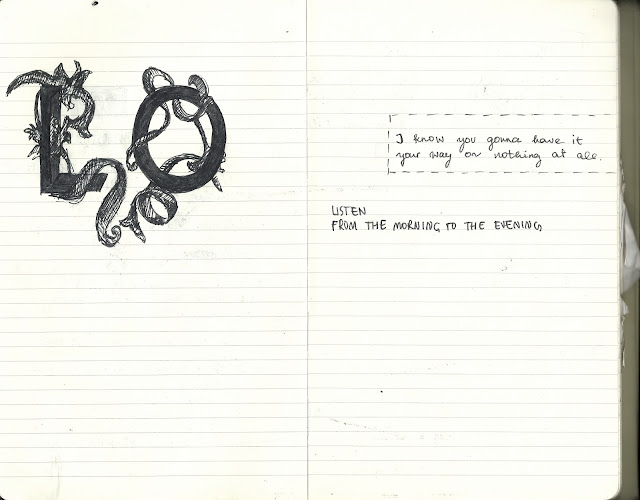 LO
I know you gonna have it
your way or nothing at all.
LISTEN
FROM THE MORNING TO THE EVENING